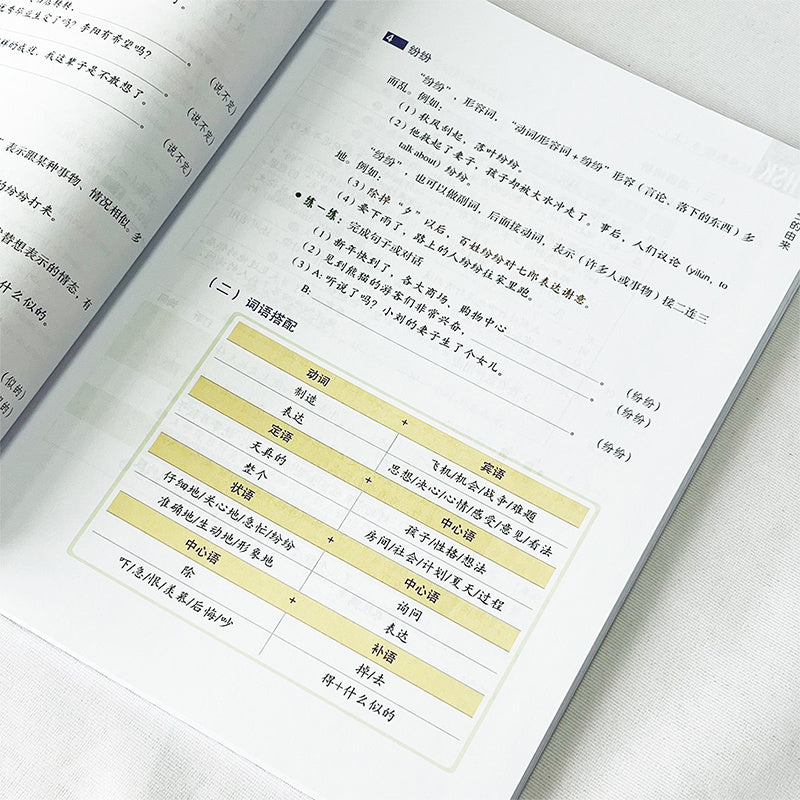 秀毕业生定了吗？李阳有希望吗？
。（说不定）
样的成绩，我这辈子是不敢想了。
。（说不定）
。（说不定）
表示跟某种事物、情况相似。多
的纷纷打来。
替想表示的情态，有
什么似的。
（似的）
4 纷纷
“纷纷”，形容词，“动词/形容词+纷纷”形容（言论、落下的东西）多
而乱。例如：
（1）秋风刮起，落叶纷纷。
（2）他救起了妻子，孩子却被大水冲走了。事后，人们议论（yìlùn, to
talk about）纷纷。
“纷纷”，也可以做副词，后面接动词，表示（许多人或事物）接二连三
地。例如：
（3）除掉“夕”以后，百姓纷纷对七郎表达谢意。
（4）要下雨了，路上的人纷纷往家里跑。
●练一练：完成句子或对话
（1）新年快到了，各大商场、购物中心
。（纷纷）
（2）见到熊猫的游客们非常兴奋，
。（纷纷）
（3）A: 听说了吗？小刘的妻子生了个女儿。
B:
。（纷纷）
（二）词语搭配
动词 + 宾语
制造 飞机/机会/战争/难题
表达 思想/决心/心情/感受/意见/看法
定语 + 中心语
天真的 孩子/性格/想法
整个 房间/社会/计划/夏天/过程
状语 + 中心语
仔细地/关心地/急忙/纷纷 询问
准确地/生动地/形象地 表达
中心语 + 补语
除 掉/去
吓/急/恨/羡慕/后悔/吵 得+什么似的
HSK
的由来